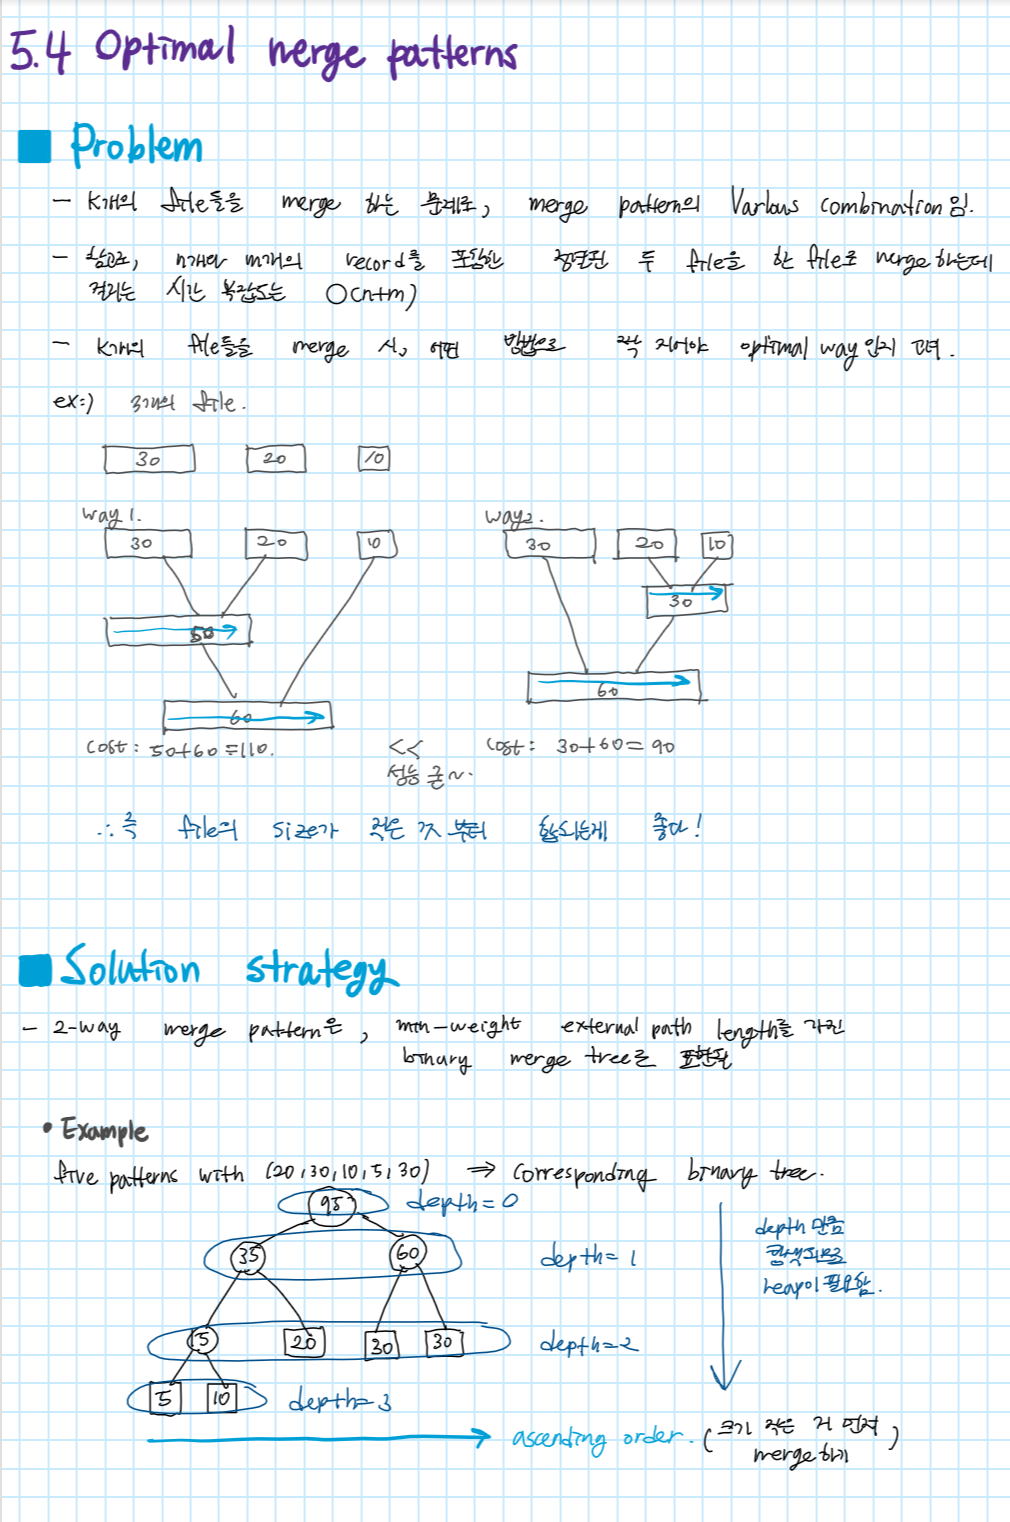 5.4 Optimal merge patterns
Problem
- K개의 file들을 merge 하는 문제로, merge pattern의 Various combination임.
- 참고로, n개와 m개의 record를 포함한 정렬된 두 file을 한 file로 merge하는데
걸리는 시간 복잡도는 O(n+m)
- K개의 file들을 merge 시, 어떤 방법으로 짝 지어야 optimal way인지 고려.
ex:) 3개의 file.
30 20 10
way 1. way2.
30 20 10 30 20 10
30
50
60
60
cost: 50+60=110. << cost: 30+60=90
성능 굳~.
∴ 즉 file의 size가 작은 것 부터 합치는게 좋다!
Solution strategy
- 2-way merge pattern은, min-weight external path length를 가진
binary merge tree로 표현됨
• Example
five patterns with (20,30,10,5,30) ⇒ corresponding binary tree.
95 depth=0
depth 만큼
35 60 depth=1
탐색되므로
heap이 필요함.
15 20 30 30 depth=2
5 10 depth=3
ascending order. (크기 작은 거 먼저
merge하기)